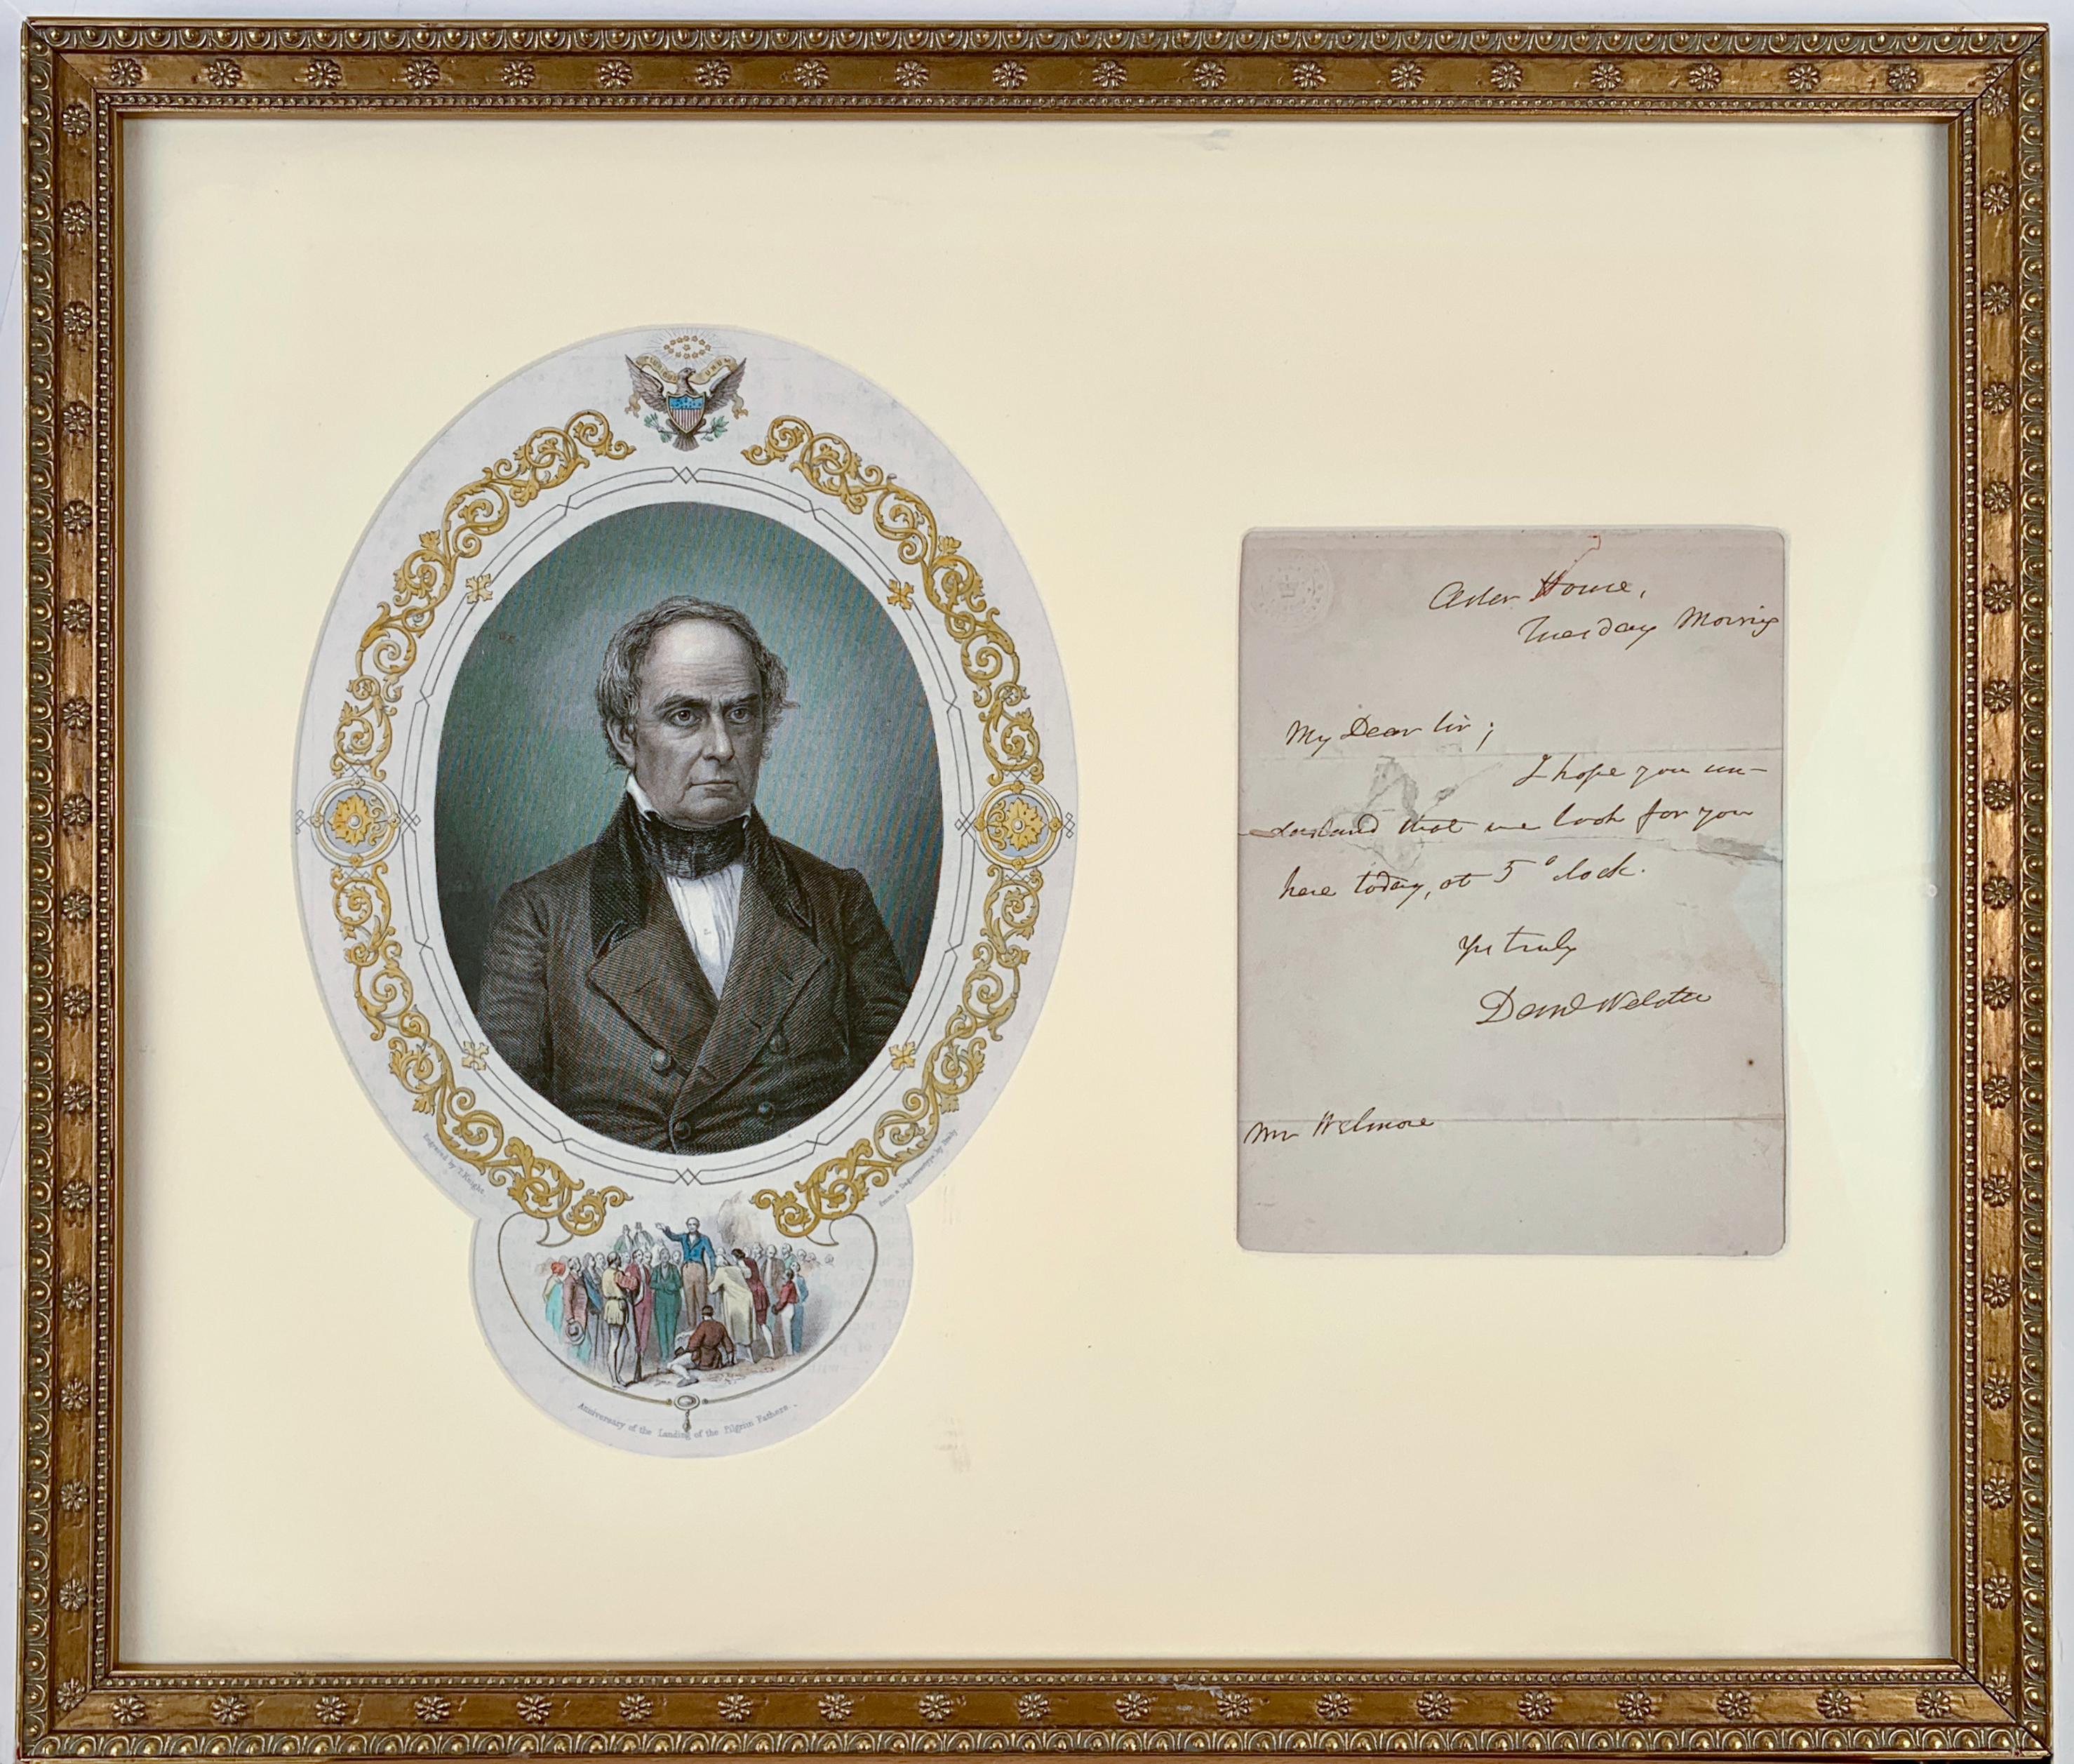 Engraved by T. Knight.
from a Daguerreotype by
Anniversary of the Landing of the Pilgrim Fathers.
Astor House,
Tuesday Morning
My Dear Sir;
I hope you un-
derstand that we look for you
here today, at 5 o'clock.
Yrs truly
Danl Webster
Mr Wetmore